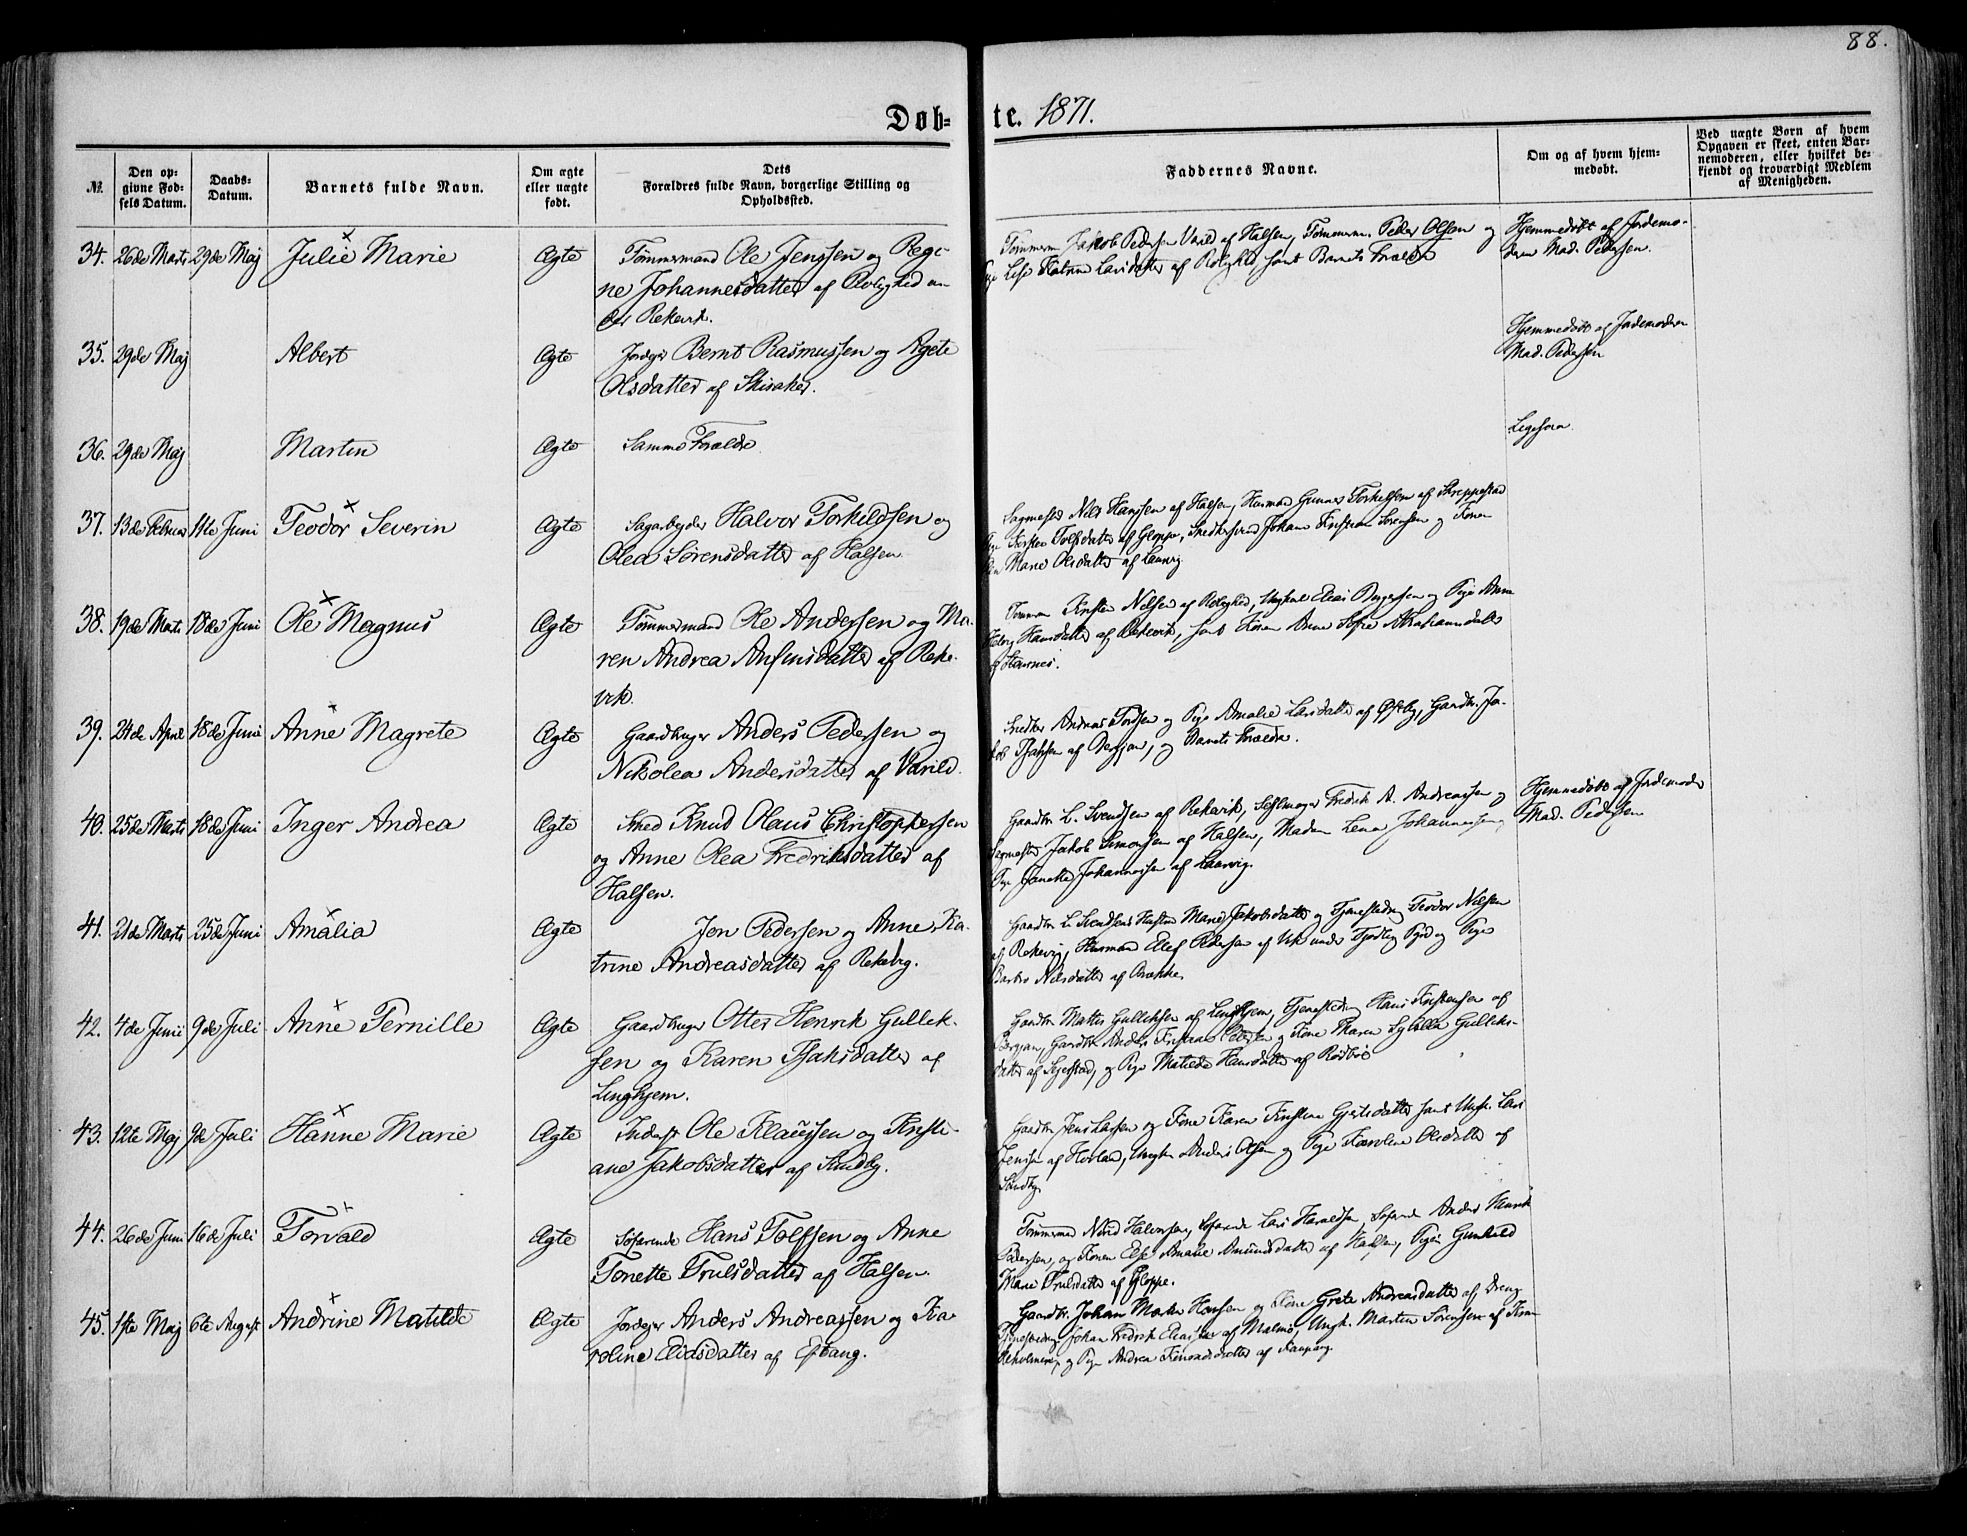 88.
Døb=
te. 1871.
№.
Den op-
givne Fød-
sels Datum.
Daabs-
Datum.
Barnets fulde Navn.
Om ægte
eller uægte
født.
Dets
Forældres fulde Navn, borgerlige Stilling og
Opholdssted.
Faddernes Navne.
Om og af hvem hjem-
medøbt.
Ved uægte Børn af hvem
Opgaven er skeet, enten Bar-
nemoderen, eller hvilket be-
kjendt og troværdigt Medlem
af Menigheden.
34. 26de Marts 29de Maj Julie Marie Ægte Tømmermand Ole Jenssen og Regi-
ne Johannesdatter af Rolighed un-
der Rekevik.
Tømmerm Jakob Pedersen Varild af Halsen, Tømmerm. Peder Olsen og
Pige Lise Katrine Larsdatter af Rolighed, samt Barnets Forældre
Hjemmedøbt af Jordemo-
deren Mad. Pedersen.
35. 29de Maj Albert Ægte Jordejer Bernt Rasmussen og Agete
Olsdatter af Skisaker.
Hjemmedøbt af Jordemoderen
Mad. Pedersen
36. 29de Maj Martin Ægte Samme Forældre
Ligesom
37. 13de Februar 11te Juni Teodor Severin Ægte Sagarbejder Halvor Torkildsen og
Olea Sørensdatter af Halsen
Sagmester Nils Hanssen af Halsen, Husmand Gunnar Torkelssen af Skreppestad
Pige Kirsten Tolfsdatter af Gloppe, Snedkersvend Johan Kristian Sørensen og Konen
Marie Olsdatter af Laurvig
38. 19de Marts 18de Juni Ole Magnus Ægte Tømmermand Ole Andersen og Ma-
ren Andrea Anfinsdatter af Reke-
vik.
Tømmerm Kristen Nilsen af Rolighed, Ungkarl Elias og Pige Anne
Hansdatter af Rekevik, samt Konen Anne Sofie Abrahamsdatter
af Stavnes.
39. 24de April 18de Juni Anne Magrete Ægte Gaardbruger Anders Pedersen og
Nikolea Andersdatter af Varild.
Snedker Andreas Tordsen og Pige Amalie Larsdatter af Østeby, Gaardbr. Ja-
kob Isaksen af Bergan, og Barnets Forældre.
40. 25de Marts 18de Juni Inger Andrea Ægte Smed Knud Olaus Christophersen
og Anne Olea Fredriksdatter af
Halsen.
Gaardbr L. Svendsen af Rekevik, Sejlmager Fredrik A. Andreassen og
Sagmester Jakob Simonsen af Halsen, Madam Lena Johannessen,
Pige Janette Johannessen af Laurvig.
Hjemmedøbt af Jordemoder
Mad. Pedersen
41. 21de Marts 25de Juni Amalia Ægte Jon Pedersen og Anne Ka-
trine Andreasdatter af Rekevig.
Gaardbr L. Svendsens Hustru Marie Jakobsdatter og Tjenestedreng Teodor Nilsen
af Rekevig, Husmand Elef Pedersen af Vik under Tjodling Pgd og Pige
Barbro Nilsdatter af Brække.
42. 4de Juni 9de Juli Anne Pernille Ægte Gaardbruger Otter Henrik Gullik-
sen og Karen Isaksdatter af
Linghjem.
Gaardbr Mattis Gulliksen af Linghjem, Tjenestedreng Hans Kristensen af
Bergan, Gaardbr Anders Kristian Pedersen og Kone Maren Sybilla Gulliks-
datter af Sejerstad, og Pige Matilde Hansdatter af Rødbøl
43. 12te Maj 9de Juli Hanne Marie Ægte Inderst Ole Klaussen og Kristi-
ane Jakobsdatter af Sundby.
Gaardbr Jens Larsen og Kone Karen Kirstine Gjertsdatter samt Ungk. Lars
Jenssen af Hovland, Ungk Anders Olsen og Pige Karoline Olsdatter af
Sundby
44. 26de Juni 16de Juli Torvald Ægte Søfarende Hans Tolfsen og Anne
Tonette Trulsdatter af Halsen.
Tømmerm Nirid Halvorsen, Søfarende Lars Haraldsen, Søfarende Anders Henrik
Pedersen, og Konen Else Amalie Amundsdatter af Halsen, Pige Gunhild
Marie Trulsdatter af Gloppe.
45. 1ste Maj 6te August Andrine Matilde Ægte Jordejer Anders Andreassen og Ka-
roline Elidsdatter af Østang.
Gaardbr. Johan Martin Hansen og Kone Grete Andreasdatter af Breng
Tjenestedreng Johan Fredrik Eliassen af Malmø, Ungk. Martin Sørensen af
Rekholmering og Pige Andrea Simonsdatter af Kaupang